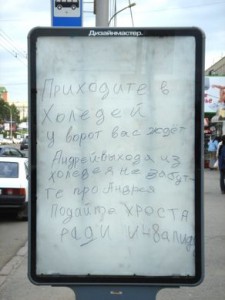 Дизайнмастер
Приходите в
Холедей
у ворот вас ждет
Андрей выхода из
холедея не забудь
те про Андрея
Подайте ХРОСТА
РАДИ